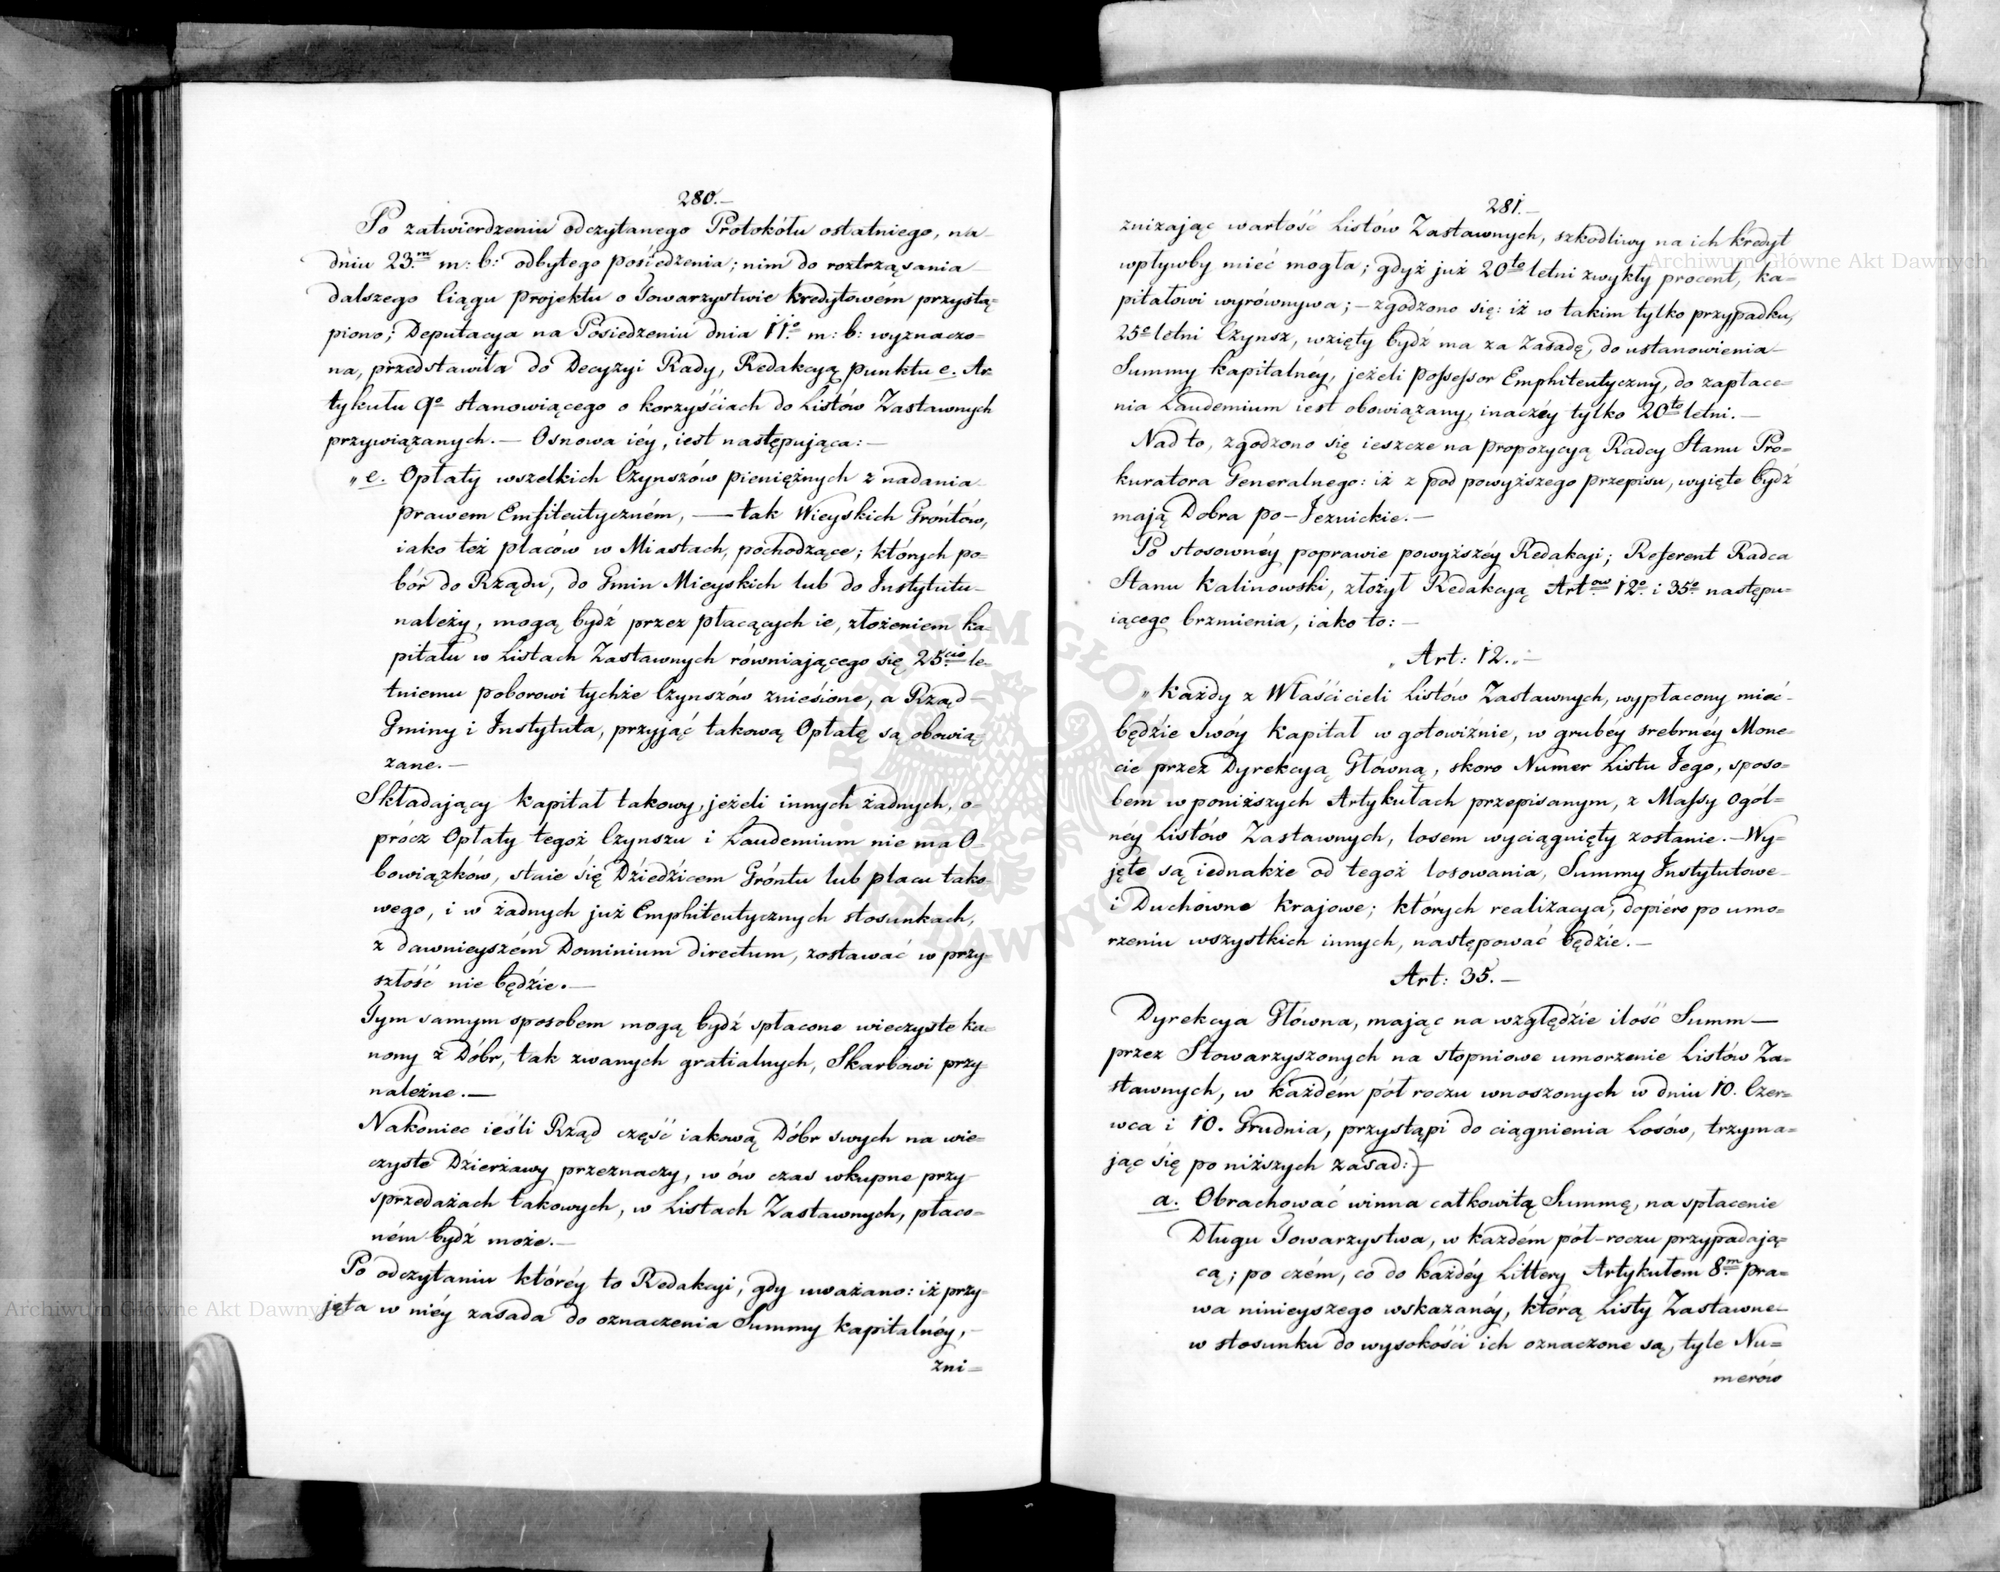 280.—
Po zatwierdzeniu odczytanego Protokółu ostatniego, na
dniu 23.m m: b: odbytego posiedzenia; nim do roztrząsania
dalszego Ciągu Projektu o Towarzystwie kredytowém przystą=
piono; Deputacya na Posiedzeniu dnia 11o m: b: wyznaczo=
na, przedstawiła do Decyzyi Rady, Redakcyą punktu e. Ar=
tykułu 9o stanowiącego o korzyściach do Listów Zastawnych
przywiązanych.— Osnowa iéy, iest następująca:—
„e. Opłaty wszelkich Czynszów pieniężnych z nadania
prawem Emfiteutyczném, — tak Wieyskich Gróntów,
iako też placów w Miastach, pochodzące; których po=
bór do Rządu, do Gmin Mieyskich lub do Instytutu
należy, mogą bydź przez płacących ie, złożeniem ka=
pitału w Listach Zastawnych równiającego się 25cio le=
tniemu poborowi tychże Czynszów zniesione, a Rząd—
Gminy i Instytuta, przyjąć takową Opłatę są obowią=
zane.—
Składający kapitał takowy, jeżeli innych żadnych, o=
prócz Opłaty tegoż Czynszu i Laudemium nie ma O=
bowiązków, staie się Dziedzicem Gróntu lub placu tako=
wego, i w żadnych już Emphiteutycznych stosunkach,
z dawnieyszém Dominium directum, zostawać w przy=
szłość nie będzie.—
Tym samym sposobem mogą bydź spłacone wieczyste ka=
nony z Dóbr, tak zwanych gratialnych, Skarbowi przy=
należne.—
Nakoniec ieśli Rząd część iakową Dóbr swych na wie=
czyste Dzierżawy przeznaczy, w ów czas wkupne przy
sprzedażach takowych, w Listach Zastawnych, płaco=
ném bydź może.—
Po odczytaniu któréy to Redakcyi, gdy uważano: iż przy=
jęta w niéy zasada do oznaczenia Summy kapitalnéy,—
zni=
281.—
zniżając wartość Listów Zastawnych, szkodliwy na ich kredyt
wpływby mieć mogła; gdyż już 20to letni zwykły procent, ka=
pitałowi wyrównywa;— zgodzono się: iż w takim tylko przypadku,
25o letni Czynsz, wzięty bydź ma za Zasadę, do ustanowienia
Summy kapitalnéy, jeżeli Possessor Emphiteutyczny, do zapłace=
nia Laudemium iest obowiązany, inaczéy tylko 20to letni.—
Nad to, zgodzono się ieszcze na propozycyą Radcy Stanu Pro=
kuratora Generalnego: iż z pod powyższego przepisu, wyięte bydź
mają Dobra po-Jezuickie.—
Po stosownéy poprawie powyższéy Redakcyi; Referent Radca
Stanu Kalinowski, złożył Redakcyą Artow 12o i 35o następu=
iącego brzmienia, iako to:—
„Art: 12.„—
„Każdy z Właścicieli Listów Zastawnych, wypłacony mieć
będzie swóy kapitał w gotowiźnie, w grubéy srebrnéy Mone=
cie przez Dyrekcyą Główną, skoro Numer Listu Jego, sposo=
bem w poniższych Artykułach przepisanym, z Massy Ogól=
néy Listów Zastawnych, losem wyciągnięty zostanie.— Wy=
jęte są iednakże od tegoż losowania, Summy Instytutowe
i Duchowne krajowe; których realizacya, dopiéro po umo=
rzeniu wszystkich innych, następować będzie.—
Art: 35.—
Dyrekcya Główna, mając na względzie ilość Summ—
przez Stowarzyszonych na stopniowe umorzenie Listów Za=
stawnych, w każdém pół roczu wnoszonych w dniu 10. Czer=
wca i 10. Grudnia, przystąpi do ciągnienia Losów, trzyma=
jąc się po niższych zasad:)—
a. Obrachować winna całkowitą Summę, na spłacenie
Długu Towarzystwa, w każdém pół-roczu przypadają=
cą; po czém, co do każdéy Littery Artykułem 8.m pra=
wa ninieyszego wskazanéy, którą Listy Zastawne
w stosunku do wysokości ich oznaczone są, tyle Nu=
merów
Archiwum Główne Akt Dawnych
Archiwum Główne Akt Dawnych
ARCHIWUM GŁÓWNE AKT DAWNYCH